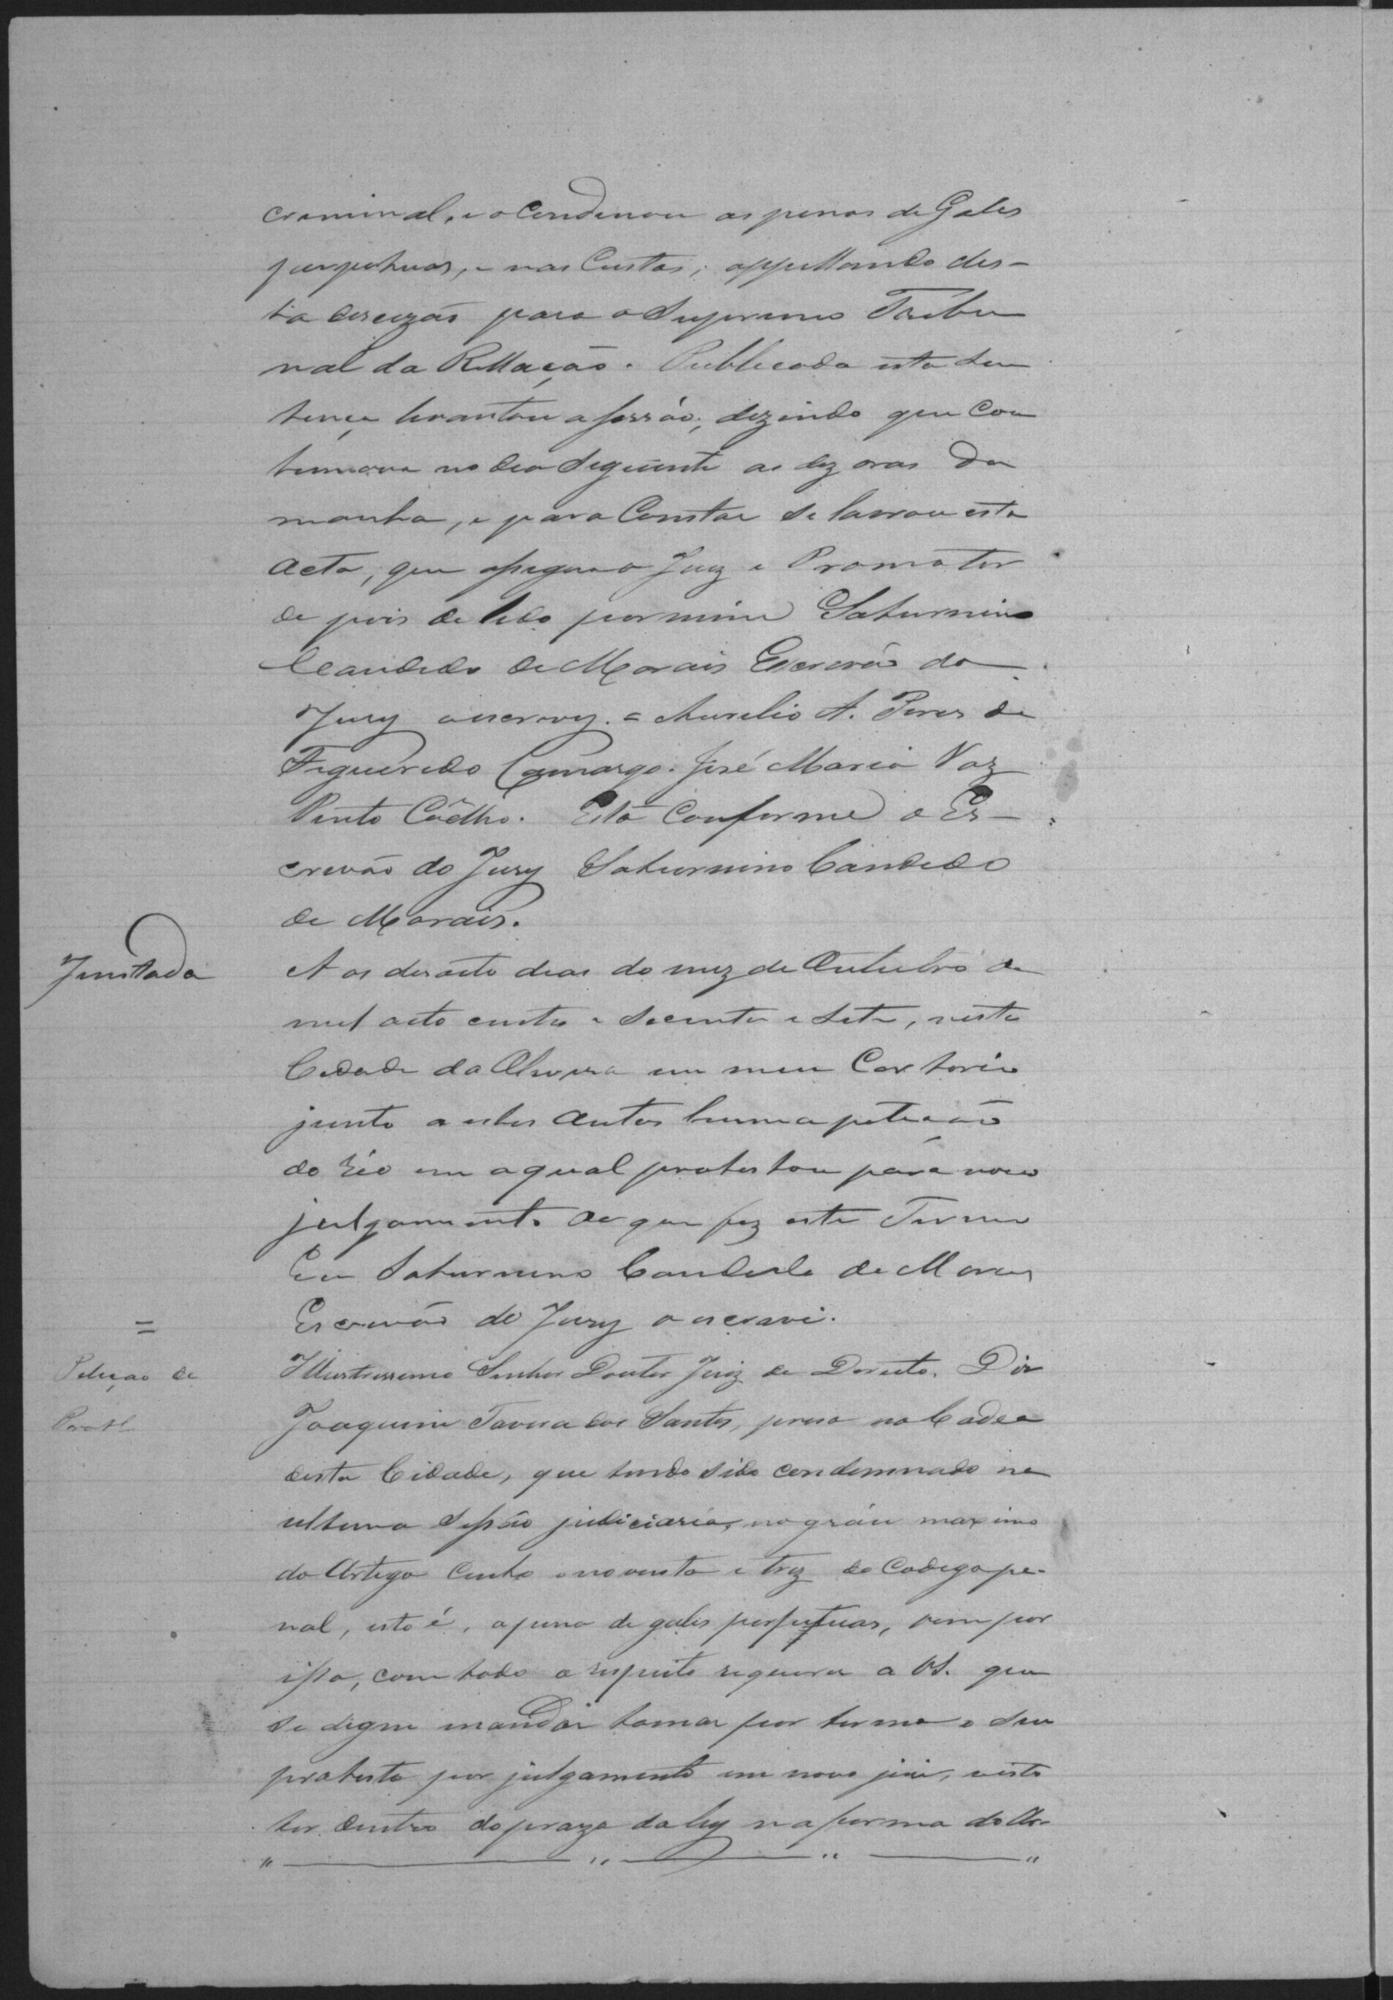 criminal, e o Condenou as penas de Gales
perpetuas, e nas Custas; appellando des-
ta decizão para o Supremo Tribu
nal da Rellação. Publicada esta sen
tença levantou a sessão, dizendo que Con
tinuava no dia seguinte as dez oras da
manha, e para Constar se lavrou esta
Acta, que assignao Juiz e Promotor
de pois de lida por mim Saturnino
Candido de Morais Escrivão do
Jury o escrevy. = Aurelio A. Pires de
Figueredo Camargo. José Maria Vaz
Pinto Coêlho. Está Conforme o Es-
crivão do Jury Saturnino Candido
de Morais.
Juntada
Aos desoito dias do mez de Outubro de
mil oito centos e secenta e sete, nesta
Cidade da Oliveira em meu Cartorio
junto a estes autos huma petição
do Réo em a qual protestou para novo
julgamento de que fiz este Termo
Eu Saturnino Candido de Moraes
Escrivão do Jury o escrevi.
=
Petição de
Prot
Illustrissimo Senhor Doutor Juiz de Dereito. Diz
Joaquim Tavera dos Santos, preso na Cadea
desta Cidade, que tendo sido condemnado na
ultima sessão judiciaria, no gráu maximo
do Artigo Cento e noventa e trez do Codego pe-
nal, isto é, a pena de galés perpetuas, vem por
isso, com todo o respeito requerer a VS. que
se digne mandar tomar por termo o seu
protesto por julgamento em novo juri, visto
ter dentro do prazo da ley na forma do Ar-
" — " — " — "